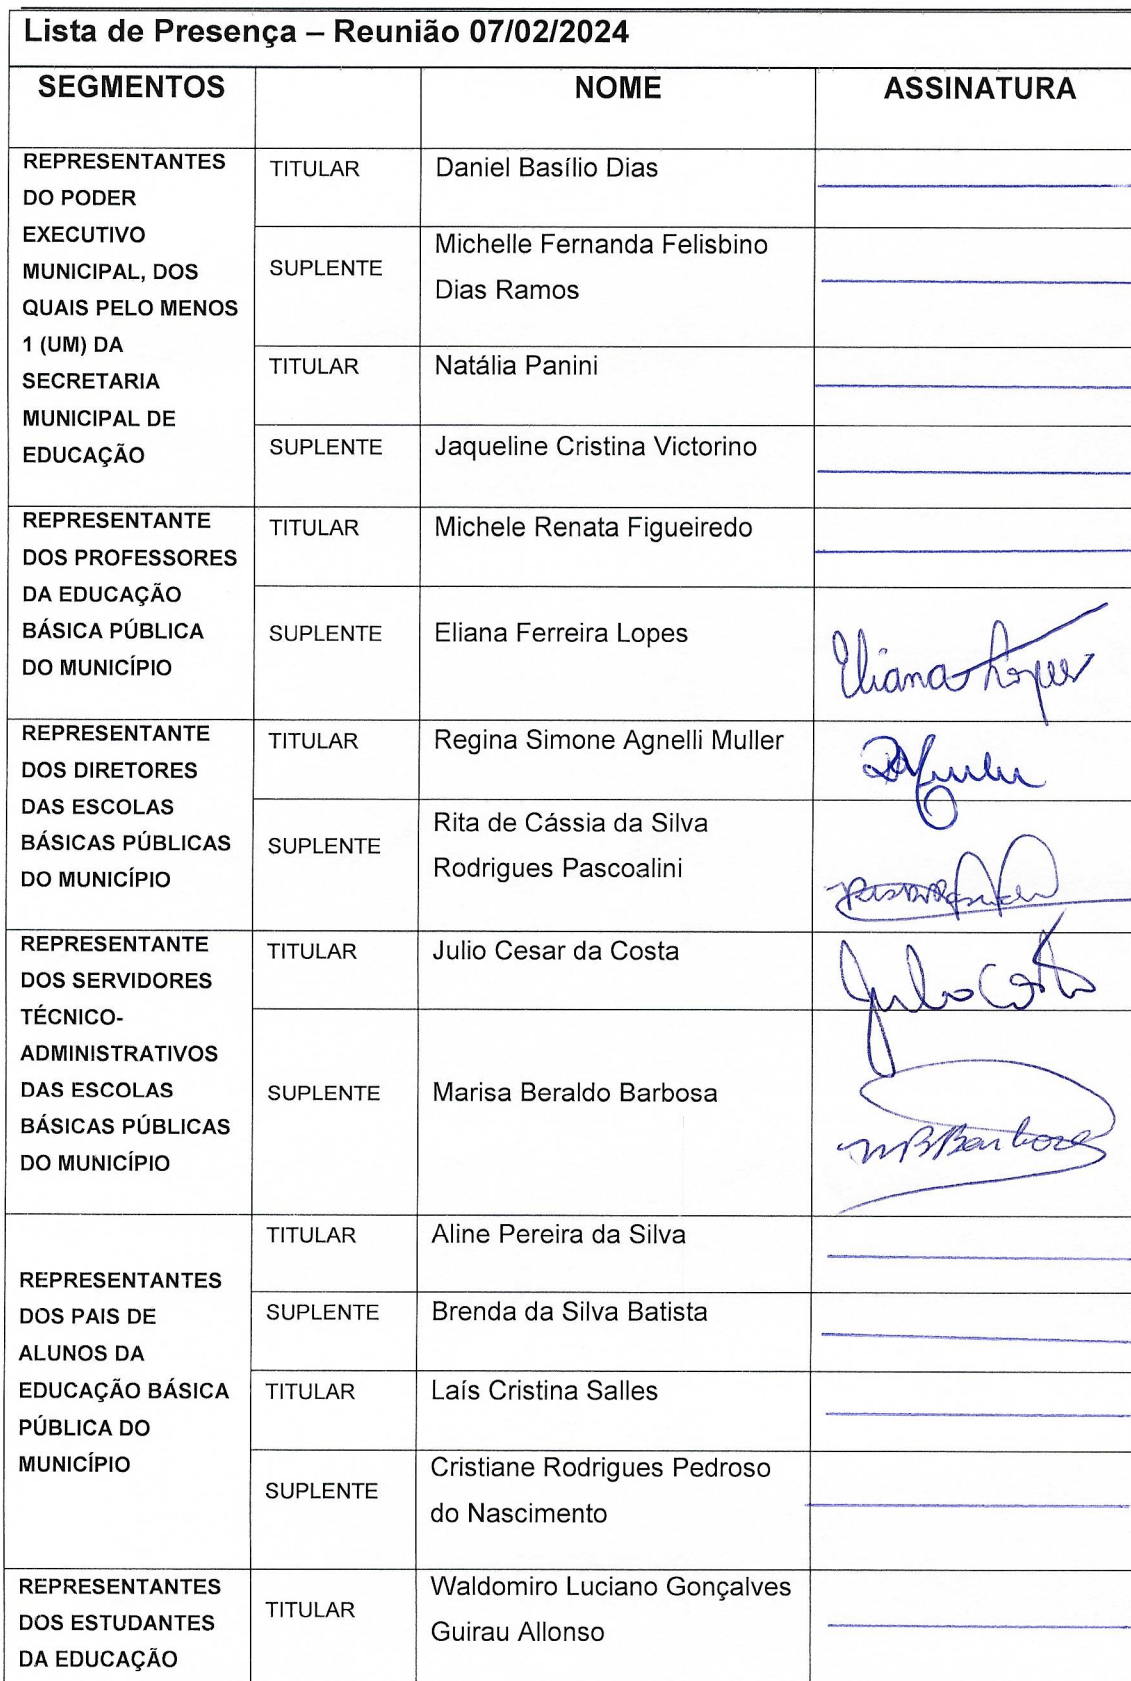 Lista de Presença – Reunião 07/02/2024
SEGMENTOS NOME ASSINATURA
REPRESENTANTES
DO PODER
EXECUTIVO
MUNICIPAL, DOS
QUAIS PELO MENOS
1 (UM) DA
SECRETARIA
MUNICIPAL DE
EDUCAÇÃO
TITULAR
Daniel Basílio Dias
SUPLENTE
Michelle Fernanda Felisbino
Dias Ramos
TITULAR
Natália Panini
SUPLENTE
Jaqueline Cristina Victorino
REPRESENTANTE
DOS PROFESSORES
DA EDUCAÇÃO
BÁSICA PÚBLICA
DO MUNICÍPIO
TITULAR
Michele Renata Figueiredo
SUPLENTE
Eliana Ferreira Lopes
Eliana Lopes
REPRESENTANTE
DOS DIRETORES
DAS ESCOLAS
BÁSICAS PÚBLICAS
DO MUNICÍPIO
TITULAR
Regina Simone Agnelli Muller
SUPLENTE
Rita de Cássia da Silva
Rodrigues Pascoalini
REPRESENTANTE
DOS SERVIDORES
TÉCNICO-
ADMINISTRATIVOS
DAS ESCOLAS
BÁSICAS PÚBLICAS
DO MUNICÍPIO
TITULAR
Julio Cesar da Costa
Julio Costa
SUPLENTE
Marisa Beraldo Barbosa
MBBarbosa
REPRESENTANTES
DOS PAIS DE
ALUNOS DA
EDUCAÇÃO BÁSICA
PÚBLICA DO
MUNICÍPIO
TITULAR
Aline Pereira da Silva
SUPLENTE
Brenda da Silva Batista
TITULAR
Laís Cristina Salles
SUPLENTE
Cristiane Rodrigues Pedroso
do Nascimento
REPRESENTANTES
DOS ESTUDANTES
DA EDUCAÇÃO
TITULAR
Waldomiro Luciano Gonçalves
Guirau Allonso